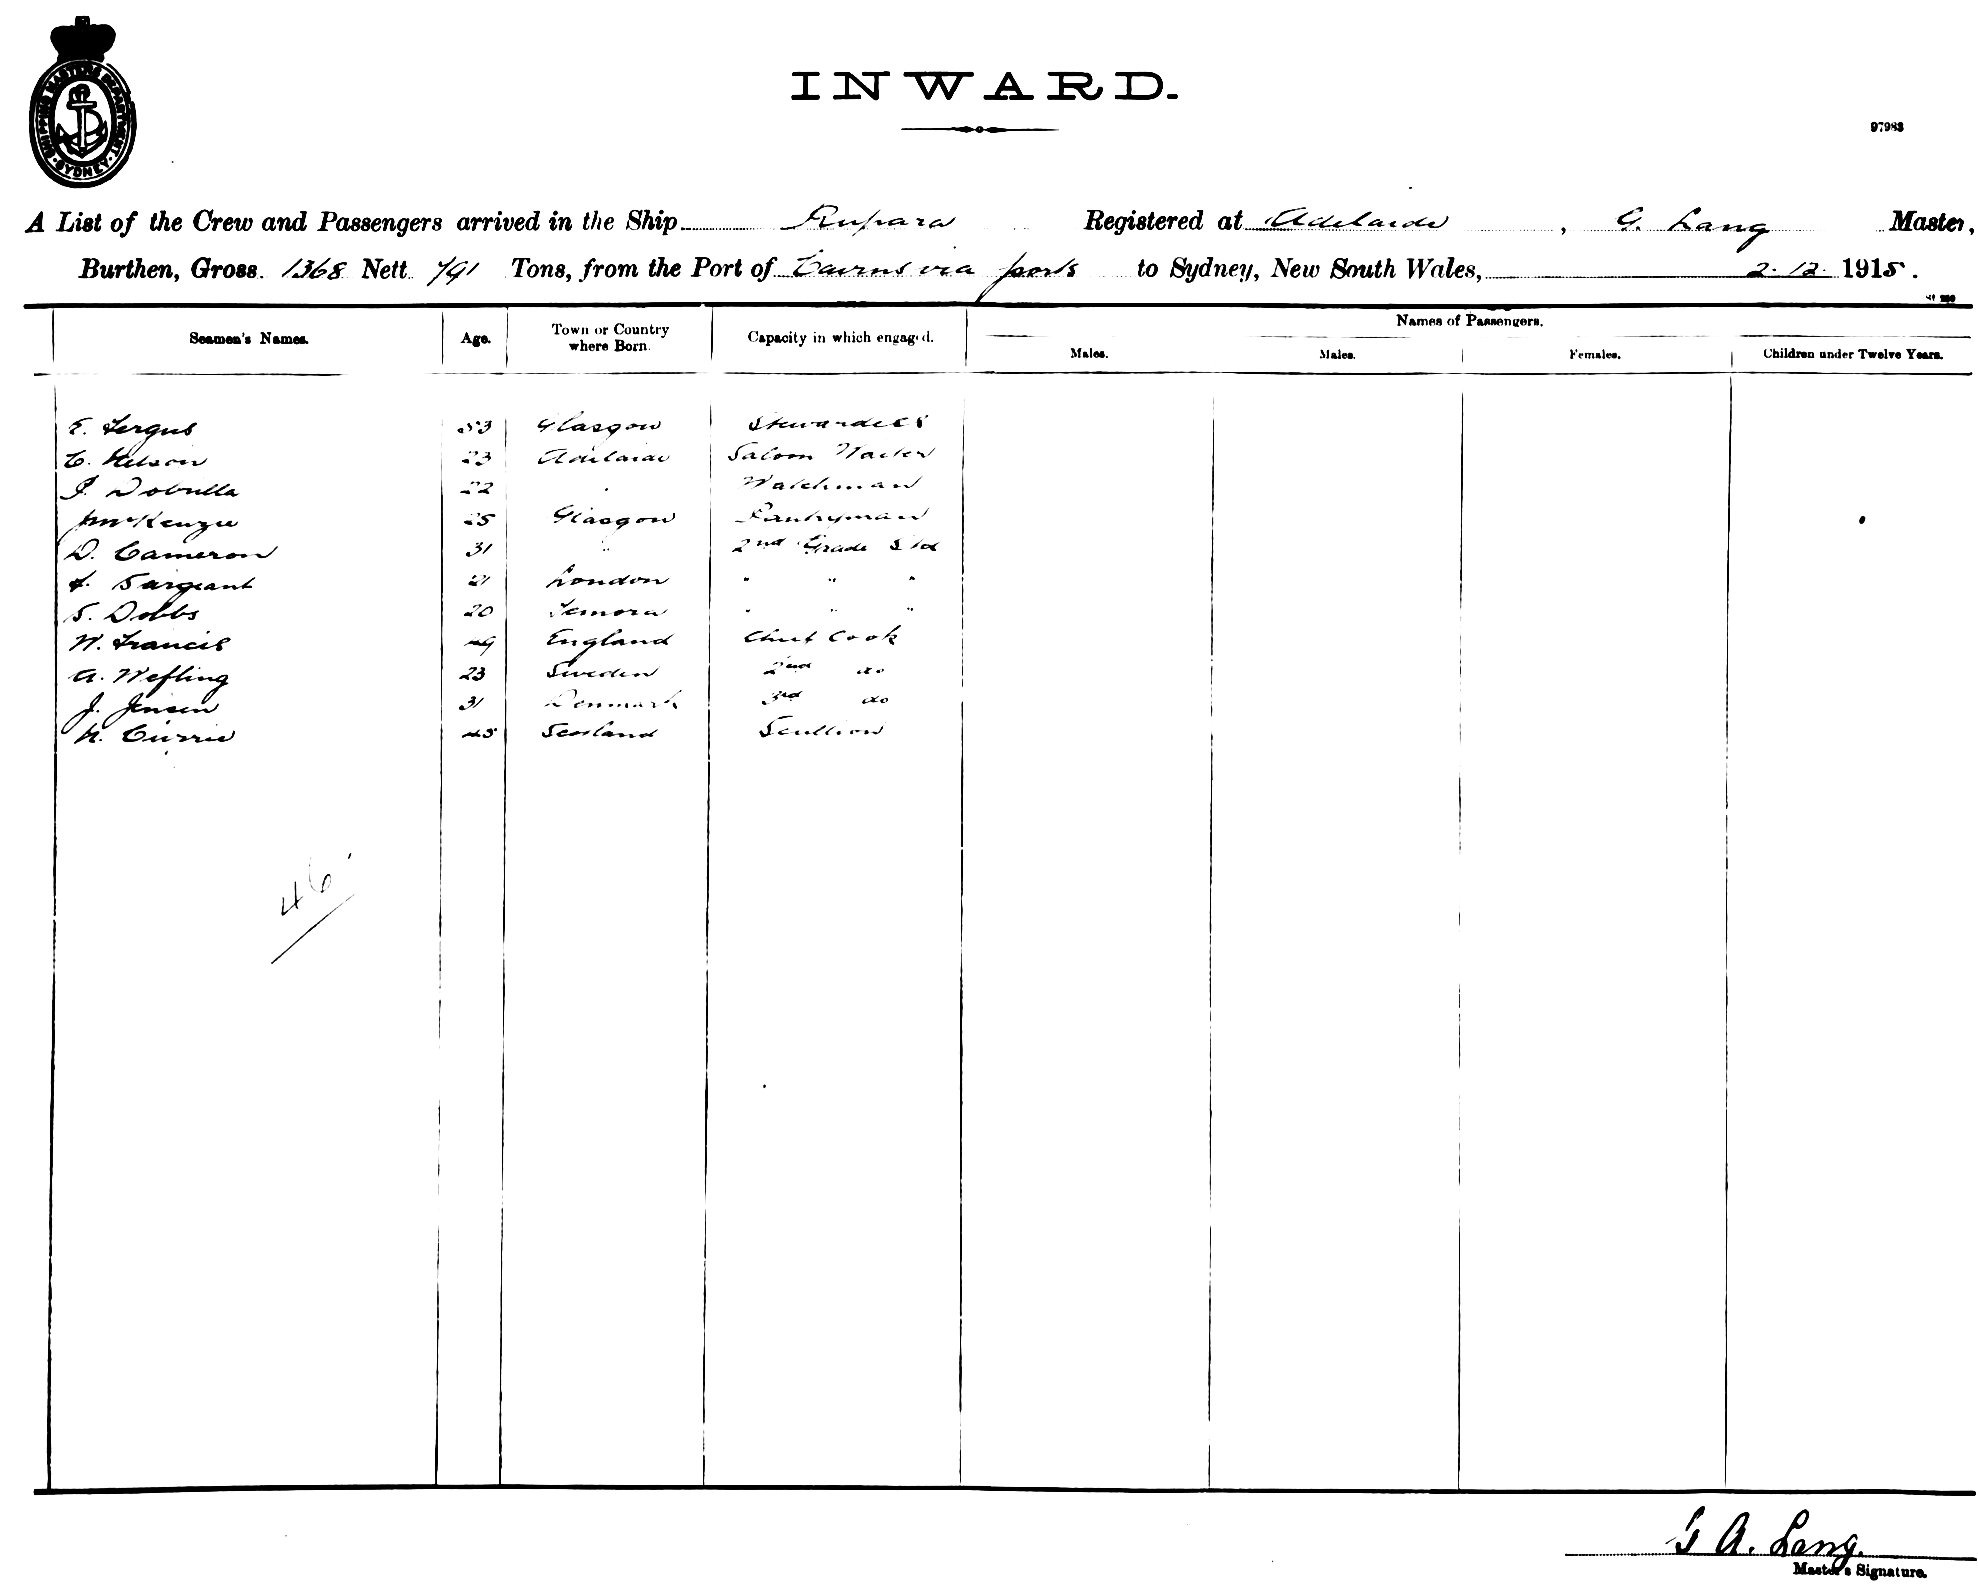 SHIPPING MASTERS DEPARTMENT · SYDNEY ·
INWARD.
97983
A List of the Crew and Passengers arrived in the Ship Rupara Registered at Adelaide, G. Lang Master,
Burthen, Gross 1368 Nett 791 Tons, from the Port of Cairns via ports to Sydney, New South Wales, 2.12.1915.
Seamen's Names. Age. Town or Country where Born. Capacity in which engaged. Names of Passengers.
Males. Males. Females. Children under Twelve Years.
E. Fergus 53 Glasgow Stewardess
C. Nelson 23 Adelaide Saloon Waiter
22 Watchman
McKenzie 25 Glasgow Pantryman
D. Cameron 31 " 2nd Grade Std
Sargeant 21 London " " "
S. Dobbs 20 Temora " " "
W. Francis 49 England Chief Cook
A. Wefling 23 Sweden 2nd do
J. Jensen 31 Denmark 3rd do
Currie 45 Scotland Scullion
46
G A. Lang.
Master's Signature.